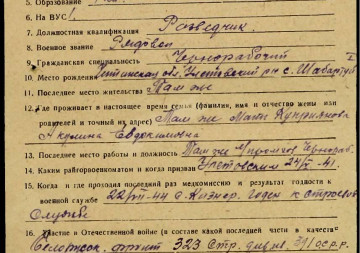 5. Образование
6. На ВУС 1.
7. Должностная квалификация Разведчик.
8. Военное звание Рядовой
9. Специальность Чернорабочий
10. Место рождения Читинская обл. Улетовский рн с. Шабартуй
11. Последнее место жительства Там же
12. Где проживает в настоящее время семья (фамилия, имя и отчество жены или
родителей и точный их адрес) Там же Мать Куприянова
Акулина Евдокимовна
13. Последнее место работы и должность Там же
14. Каким райгорвоенкоматом и когда призван Улетовским 24/ 41.
15. Когда и где проходил последний раз медкомиссию и результат годности к
военной службе 22/ 44 г. Годен к строевой
службе
16. Участие в Отечественной войне (в составе какой последней части в качестве
фронт 323 стр. дивиз.